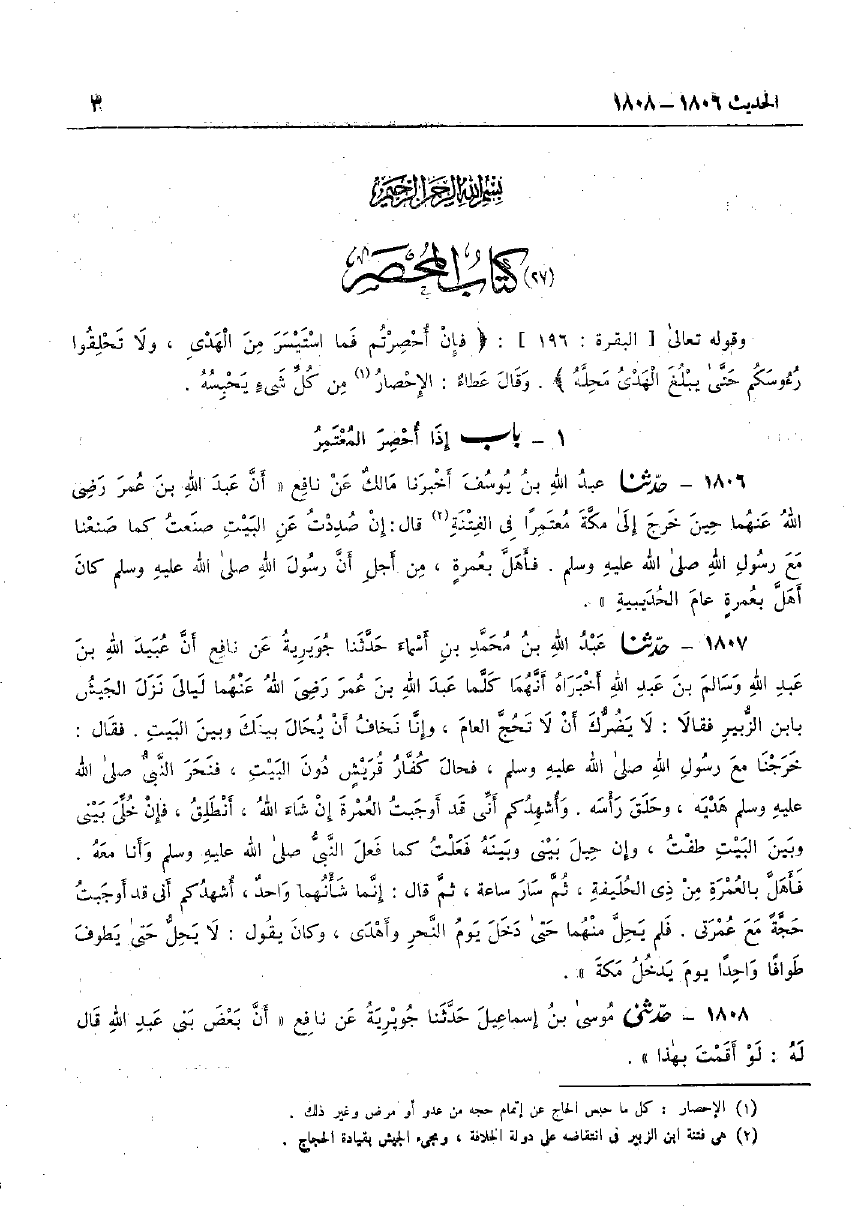 الحديث ١٨٠٦ – ١٨٠٨ ٣
بسم الله الرحمن الرحيم
(٢٧) كتاب المحصر
وقوله تعالىٰ [ البقرة : ١٩٦ ] : ﴿ فإنْ أُحْصِرْتُم فَما اسْتَيْسَرَ مِنَ الْهَدْىِ ، ولَا تَحْلِقُوا
رُءُوسَكُم حَتَّىٰ يبْلُغَ الْهَدْىُ مَحِلَّهُ ﴾ . وَقَالَ عَطاءٌ : الإِحْصارُ (١) مِن كُلِّ شَىءٍ يَحْبِسُهُ .
١ – باب إِذَا أُحْصِرَ المُعْتَمِرُ
١٨٠٦ – حدّثنا عبدُ اللهِ بنُ يُوسُفَ أَخْبرَنا مَالكٌ عَنْ نافِعٍ « أَنَّ عَبدَ اللهِ بنَ عُمرَ رَضِىَ
اللهُ عَنهُما حِينَ خَرجَ إِلَىٰ مكَّةَ مُعتَمِرًا فى الفِتْنَةِ (٢) قال : إنْ صُدِدْتُ عَنِ البَيْتِ صنَعتُ كما صَنَعْنا
مَعَ رسُولِ اللهِ صلىٰ الله عليهِ وسلم . فأَهَلَّ بعُمرةٍ ، مِن أَجلِ أنَّ رسُولَ اللهِ صلىٰ الله عليهِ وسلم كانَ
أهَلَّ بعُمرةٍ عامَ الحُدَيبيةِ » .
١٨٠٧ – حدّثنا عَبْدُ اللهِ بنُ مُحَمَّدِ بنِ أَسْماءَ حَدَّثَنا جُوَيرِيةُ عَن نافِعٍ أَنَّ عُبَيدَ اللهِ بنَ
عَبدِ اللهِ وَسَالمَ بنَ عَبدِ اللهِ أَخْبَرَاهُ أَنَّهُما كَلَّما عَبدَ اللهِ بنَ عُمرَ رَضِىَ اللهُ عَنْهُما لَيالىَ نَزَلَ الجَيْشُ
بابنِ الزُّبيرِ فقالَا : لَا يَضُرُّكَ أَنْ لَا تَحُجَّ العامَ ، وإِنَّا نَخافُ أَنْ يُحَالَ بينَكَ وبينَ البَيتِ . فقال :
خَرَجْنَا معَ رسُولِ اللهِ صلىٰ الله عليهِ وسلم ، فحالَ كُفَّارُ قُرَيْشٍ دُونَ البَيْتِ ، فنَحَرَ النَّبىُّ صلىٰ الله
عليهِ وسلم هَدْيَه ، وحَلَقَ رَأْسَه . وَأُشْهِدُكم أَنِّى قد أَوجَبتُ العُمْرةَ إنْ شَاءَ اللهُ ، أَنْطَلِقُ ، فإنْ خُلِّىَ بَيْنى
وبَينَ البَيْتِ طفْتُ ، وإن حِيلَ بَيْنى وبيْنَهُ فَعَلْتُ كما فَعلَ النَّبىُّ صلىٰ الله عليهِ وسلم وَأَنا معَهُ .
فَأَهَلَّ بالعُمْرَةِ مِنْ ذِى الحُلَيفَةِ ، ثُمَّ سَارَ ساعة ، ثمَّ قال : إنَّما شَأْنُهما وَاحدٌ ، أُشهدُكم أنى قد أَوجَبتُ
حَجَّةً مَعَ عُمْرَتى . فَلم يَحِلَّ منْهُما حتّىٰ دَخَلَ يَومُ النَّحرِ وأَهْدَى ، وكانَ يقُول : لَا يَحِلُّ حتىٰ يَطوفَ
طَوافًا وَاحِدًا يومَ يَدخُلُ مَكةَ » .
١٨٠٨ – حدّثنى مُوسىٰ بنُ إسماعيلَ حَدَّثَنا جُوَيْرِيَةُ عَن نافِعٍ « أَنَّ بَعْضَ بَنى عَبدِ اللهِ قال
لَهُ : لَوْ أَقَمْتَ بِهٰذا » .
(١) الإحصار : كل ما حبس الحاج عن إتمام حجه من عدو أو مرض وغير ذلك .
(٢) هى فتنة ابن الزبير فى انتقاضه على دولة الخلافة ، ومجىء الجيش بقيادة الحجاج .